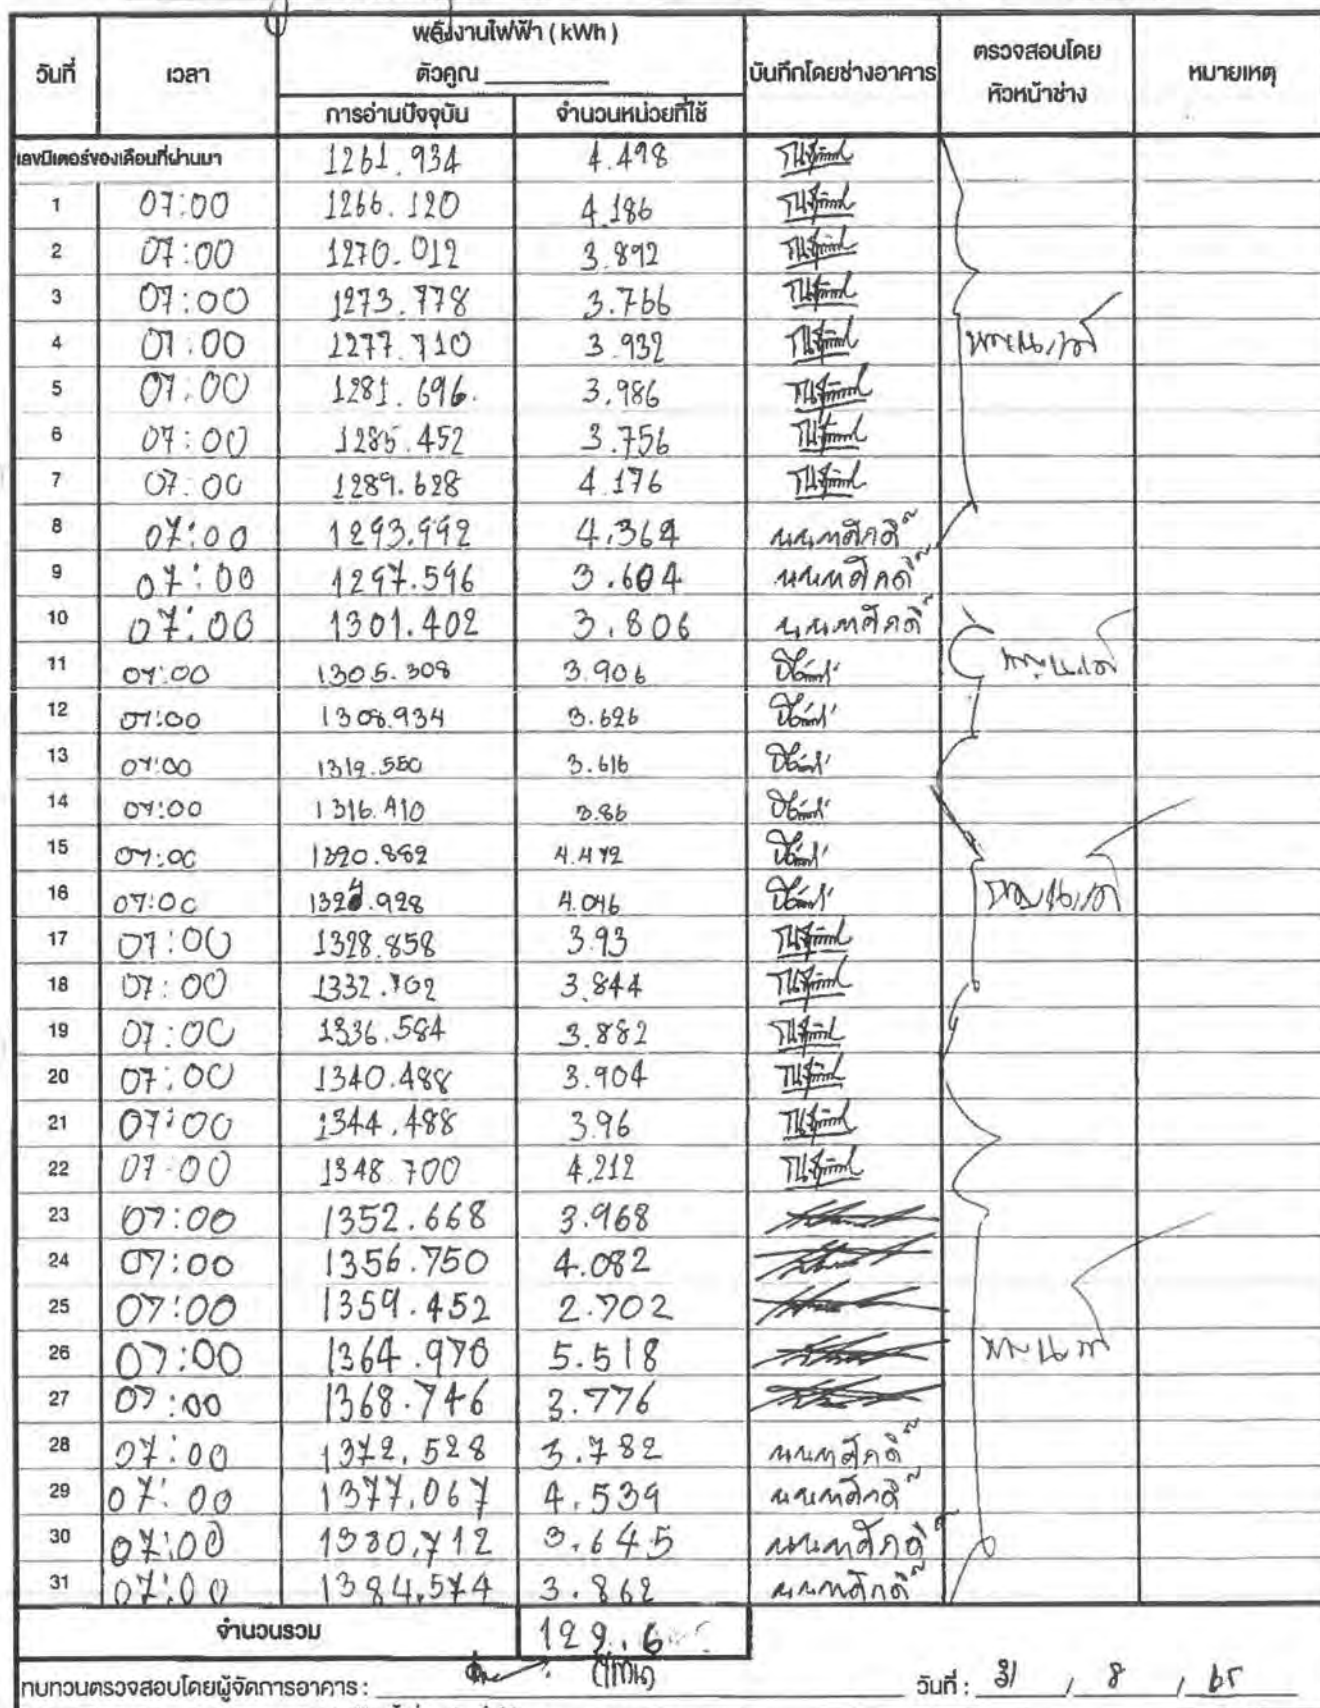 พลังงานไฟฟ้า ( kWh )
วันที่ เวลา ตัวคูณ บันทึกโดยช่างอาคาร ตรวจสอบโดย หัวหน้าช่าง หมายเหตุ
การอ่านปัจจุบัน จำนวนหน่วยที่ใช้
เลขมิเตอร์ของเดือนที่ผ่านมา 1261.934 4.498
1 07:00 1266.120 4.186
2 07:00 1270.012 3.892
3 07:00 1273.778 3.766
4 07:00 1277.710 3.932
5 07:00 1281.696. 3.986
6 07:00 1285.452 3.756
7 07:00 1289.628 4.176
8 07:00 1293.992 4.364 นนทศักดิ์
9 07:00 1297.596 3.604 นนทศักดิ์
10 07:00 1301.402 3.806 นนทศักดิ์
11 07:00 1305.308 3.906
12 07:00 1308.934 3.626
13 07:00 1312.550 3.616
14 07:00 1316.410 3.86
15 07:00 1320.882 4.472
16 07:00 1324.928 4.046
17 07:00 1328.858 3.93
18 07:00 1332.702 3.844
19 07:00 1336.584 3.882
20 07:00 1340.488 3.904
21 07:00 1344.488 3.96
22 07:00 1348.700 4.212
23 07:00 1352.668 3.968
24 07:00 1356.750 4.082
25 07:00 1359.452 2.702
26 07:00 1364.970 5.518
27 07:00 1368.746 3.776
28 07:00 1372.528 3.782 นนทศักดิ์
29 07:00 1377.067 4.539 นนทศักดิ์
30 07:00 1380.712 3.645 นนทศักดิ์
31 07:00 1384.574 3.862 นนทศักดิ์
จำนวนรวม 122.6
ทบทวนตรวจสอบโดยผู้จัดการอาคาร : วันที่ : 31 / 8 / 65